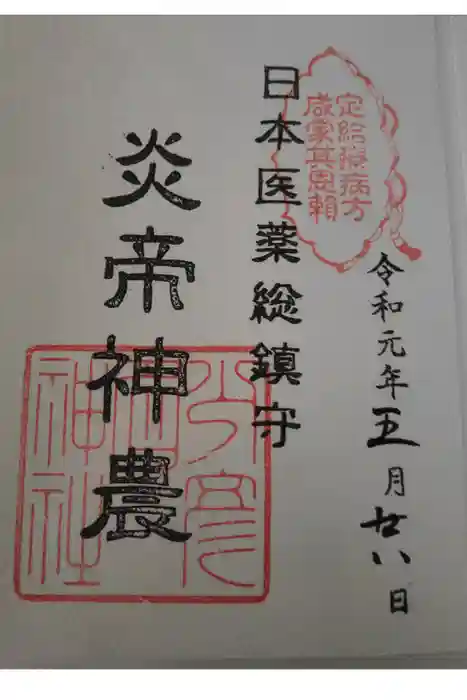 定給療病方
咸蒙其恩頼
令和元年五月廿八日
日本医薬総鎮守
炎帝神農
少彦
神社